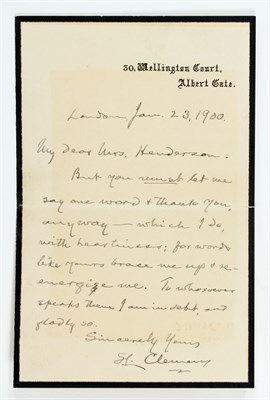 30, Wellington Court,
Albert Gate.
London, Jan. 23, 1900.
My dear Mrs. Henderson:
But you must let me
say one word & thank you,
anyway — which I do,
with heartiness; for words
like yours brace me up & re-
energize me. To whosoever
speaks them I am in debt, and
gladly so.
Sincerely Yours
SL. Clemens